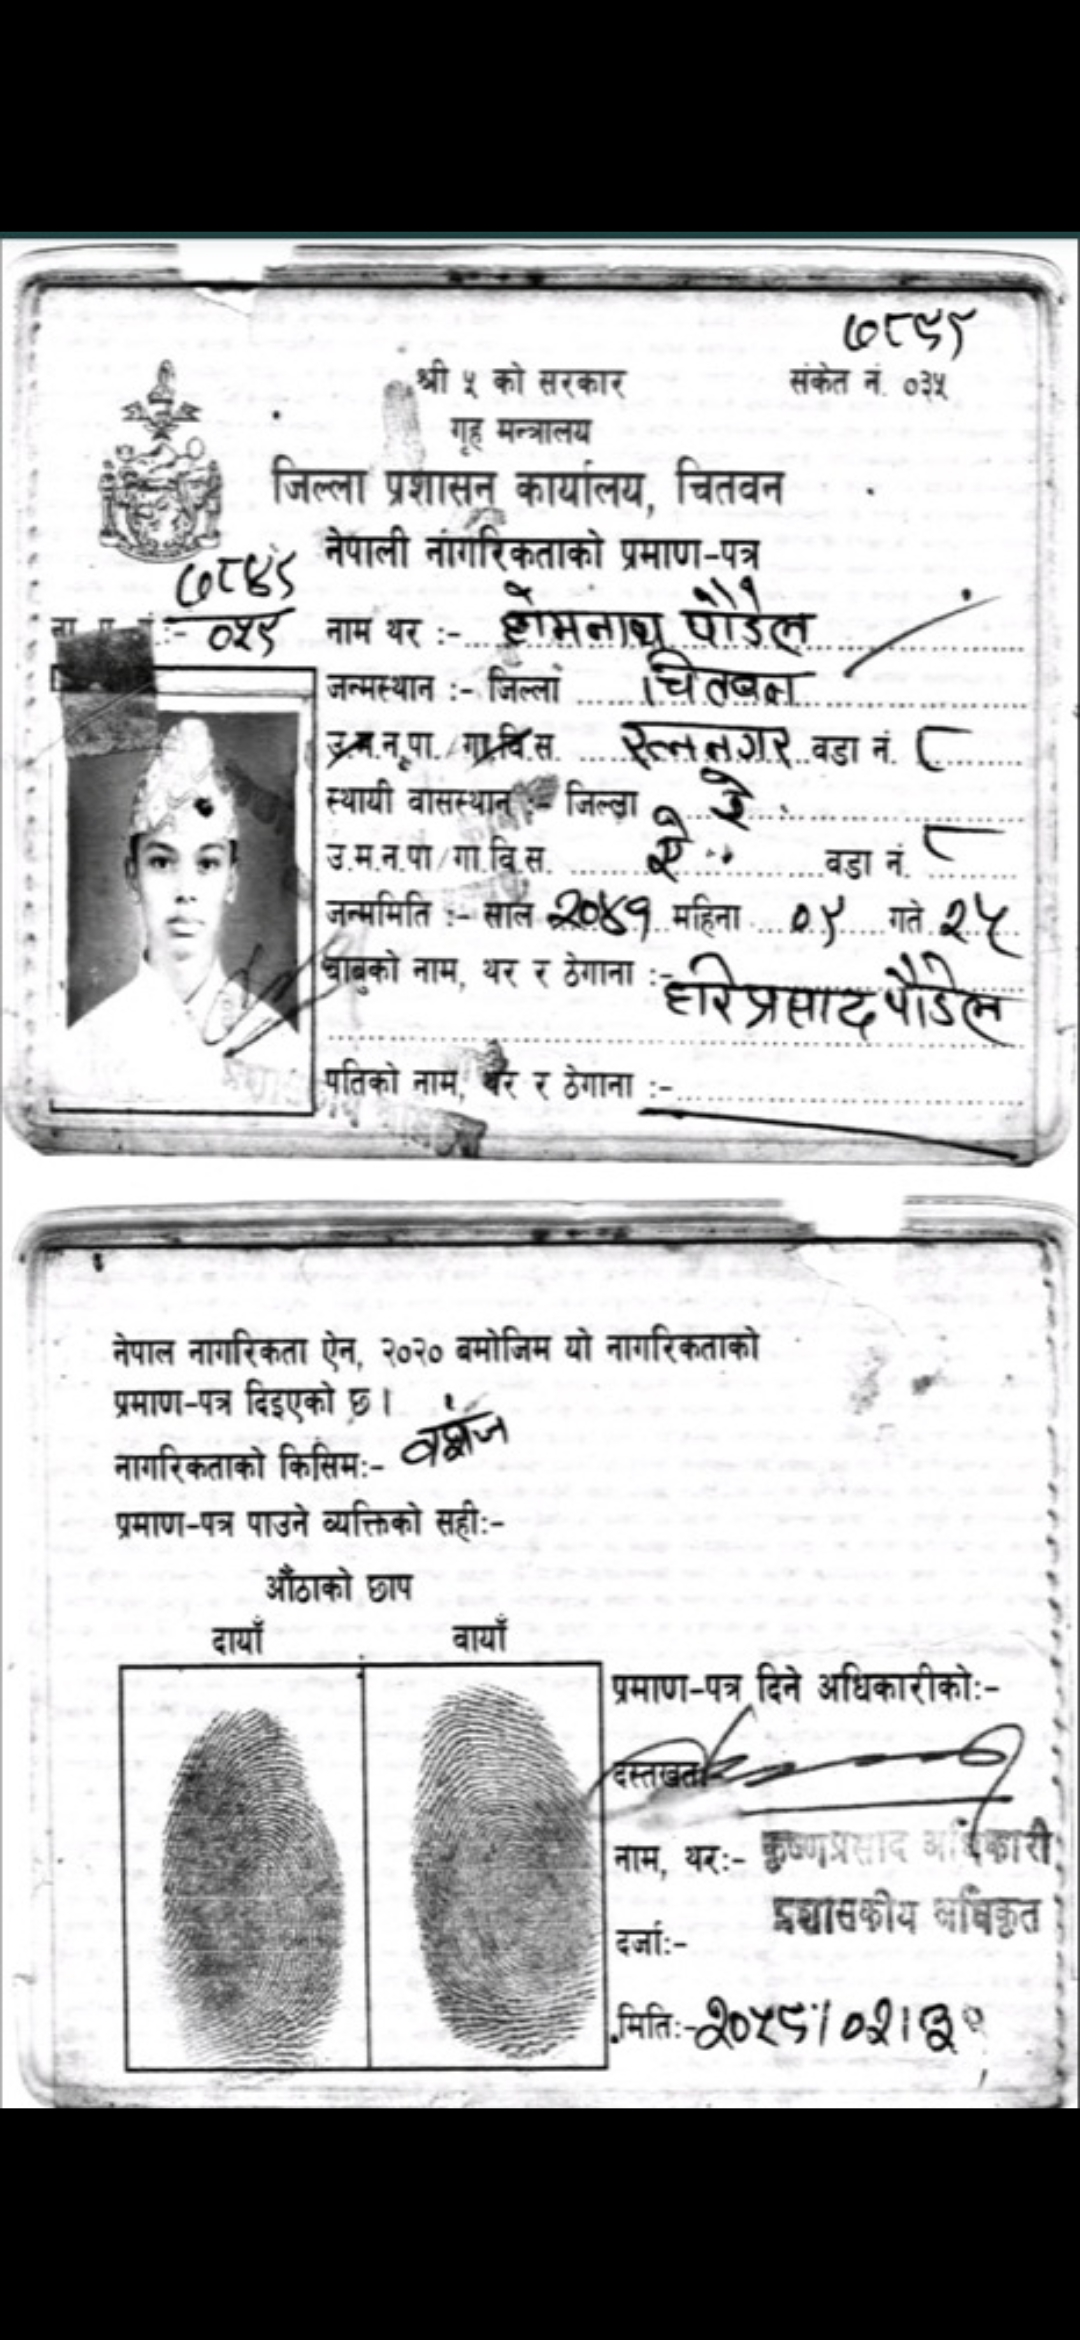 ७८९९
श्री ५ को सरकार
संकेत नं. ०३५
गृह मन्त्रालय
जिल्ला प्रशासन कार्यालय, चितवन
नेपाली नागरिकताको प्रमाण-पत्र
नाम थर :- होमनाथ पौडेल
जन्मस्थान :- जिल्ला चितवन
उ.म.न.पा./गा.वि.स. रत्ननगर वडा नं. ८
स्थायी वासस्थान :- जिल्ला ऐ
उ.म.न.पा/गा.वि.स. ऐ वडा नं. ८
जन्ममिति :- साल २०४१ महिना ०९ गते २५
बाबुको नाम, थर र ठेगाना :- हरिप्रसाद पौडेल
पतिको नाम, थर र ठेगाना :-
नेपाल नागरिकता ऐन, २०२० बमोजिम यो नागरिकताको
प्रमाण-पत्र दिइएको छ ।
नागरिकताको किसिम:- वंशज
प्रमाण-पत्र पाउने व्यक्तिको सही:-
औंठाको छाप
दायाँ वायाँ
प्रमाण-पत्र दिने अधिकारीको:-
दस्तखत
नाम, थर:- कृष्णप्रसाद अधिकारी
प्रशासकीय अधिकृत
दर्जा:-
मिति:-